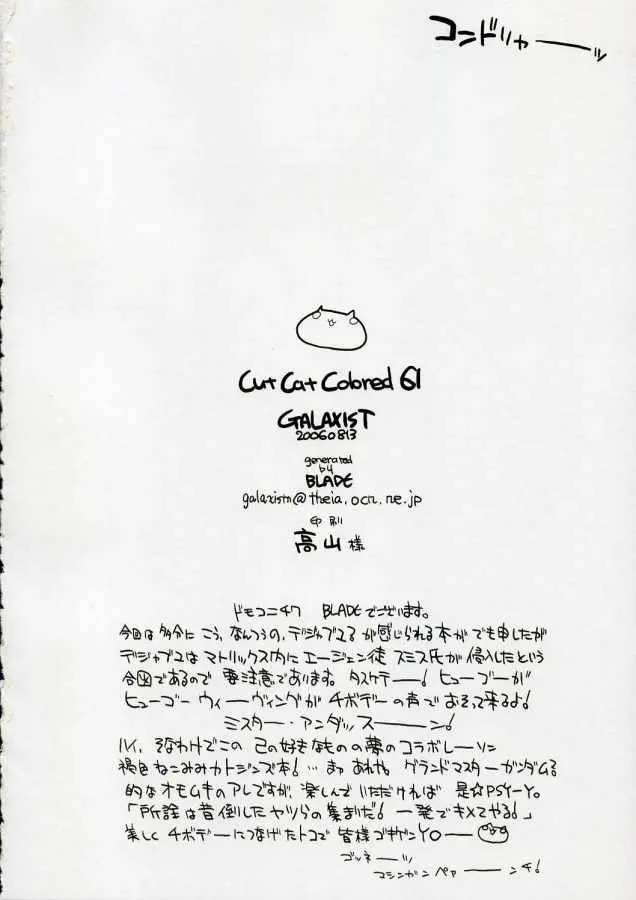 コンドリャーーッ
Cut Cat Colored 61
GALAXIST
20060813
generated
by
BLADE
galaxistn@theia.ocn.ne.jp
印刷
高山 様
ドモコニチワ BLADEでございます。
今回は多分に こう、なんつうの、デジャブュる が感じられる本が でも申したが
デジャブュは マトリックス内に エージェン徒 スミス氏が 侵入したという
合図であるので 要注意であります。タスケテー! ヒューゴーが
ヒューゴー ウィーヴィングが チボデーの声で おそって来るよ!
ミスター・アンダッスーーン!
ハイ、そなわけでこの 己の好きなものの夢のコラボレーソン
褐色ねこみみカトジンズ本!…まァ あれや。グランドマスターガンダムる
的な オモムキのアレですが、楽しんで いただければ 是☆PSY-Yo。
「所詮は昔倒したヤツらの集まりだ! 一発でキメてやる!」
美しく チボデーにつなげたトコで 皆様ゴキゲンYOーー
ゴルネーーッ
マシンガン ペァーーンチ!